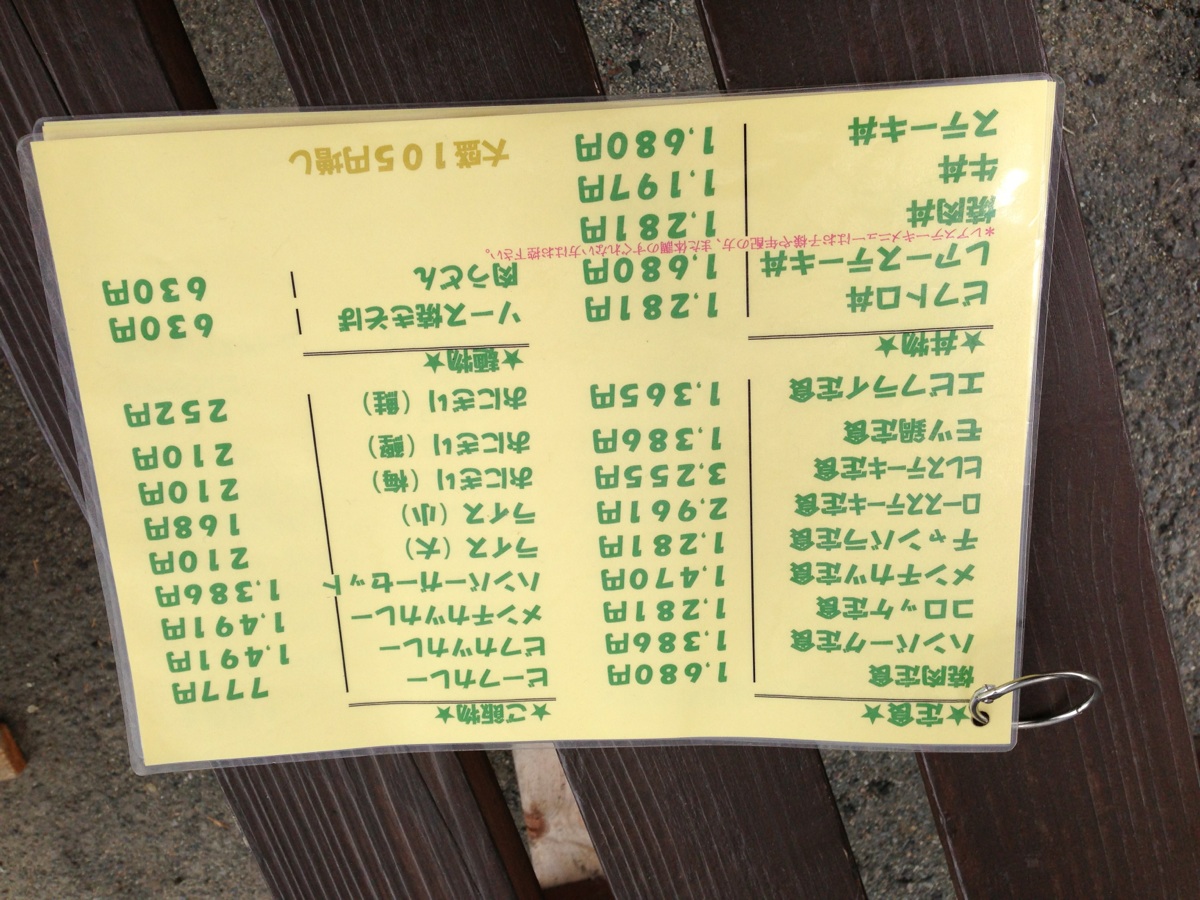 ★定食★
焼肉定食 1,680円
ハンバーグ定食 1,386円
コロッケ定食 1,281円
メンチカツ定食 1,470円
チャンバラ定食 1,281円
ロースステーキ定食 2,961円
ヒレステーキ定食 3,255円
モツ鍋定食 1,386円
エビフライ定食 1,365円
★丼物★
ビフトロ丼 1,281円
レアーステーキ丼 1,680円
*レアステーキメニューはお子様や年配の方、また体調のすぐれない方はお控下さい。
焼肉丼 1,281円
牛丼 1,197円
ステーキ丼 1,680円
★ご飯物★
ビーフカレー 777円
ビフカツカレー 1,491円
メンチカツカレー 1,491円
ハンバーガーセット 1,386円
ライス（大） 210円
ライス（小） 168円
おにぎり（梅） 210円
おにぎり（鰹） 210円
おにぎり（鮭） 252円
★麺物★
ソース焼きそば 630円
肉うどん 630円
大盛105円増し